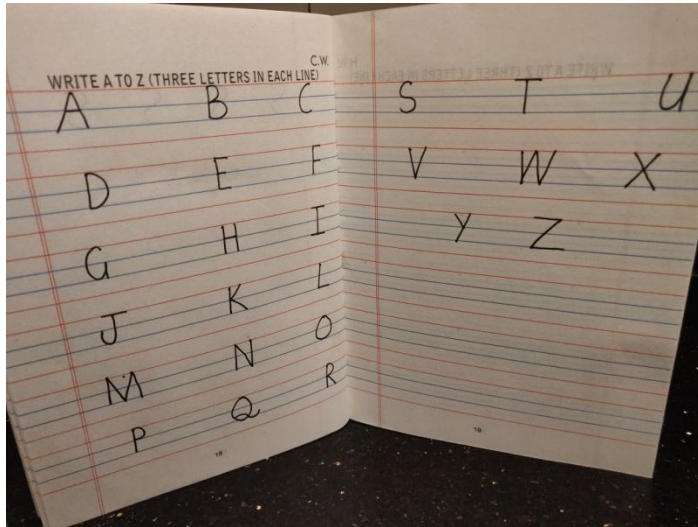 C.W.
WRITE A TO Z (THREE LETTERS IN EACH LINE)
A B C
D E F
G H I
J K L
M N O
P Q R
18
S T U
V W X
Y Z
19